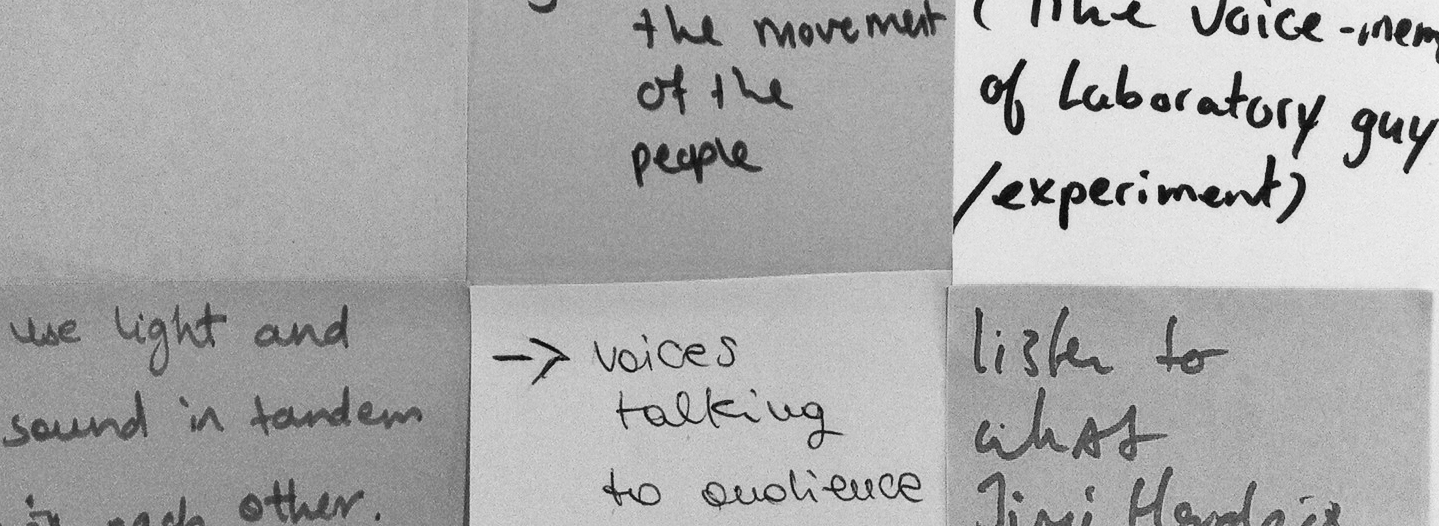 the movement
of the
people
(The voice-mem
of Laboratory guy
/experiment)
use light and
sound in tandem
each other.
→ voices
talking
to audience
listen to
what
Jimi Hendrix